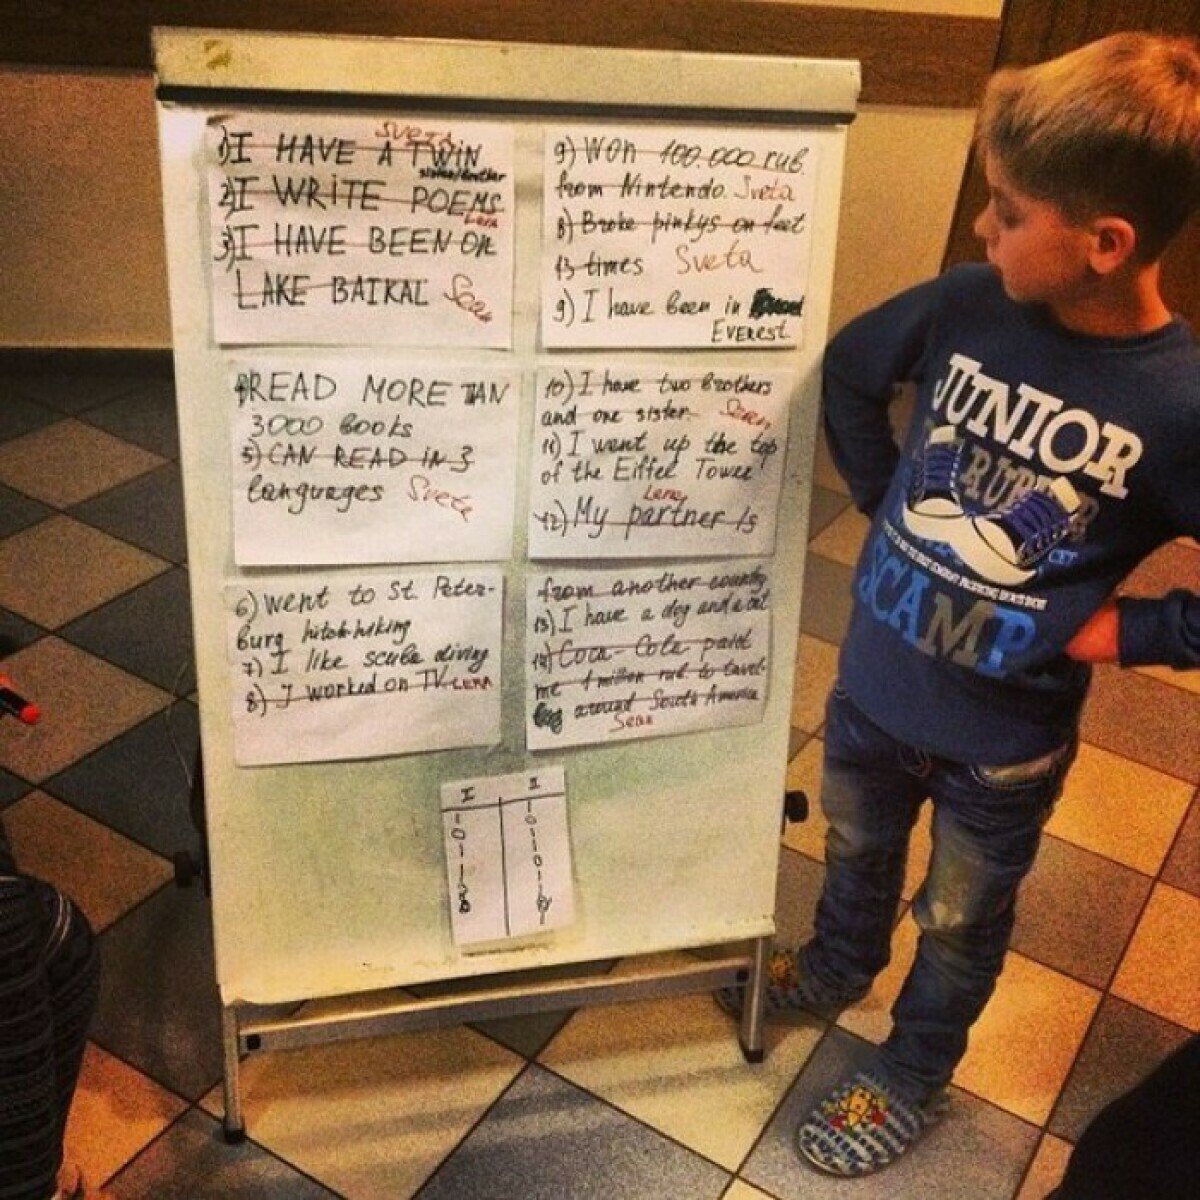 Sveta
1) I HAVE A TWIN
sister/brother
2) I WRITE POEMS
Lera
3) I HAVE BEEN ON
LAKE BAIKAL Sean
READ MORE TAN
3000 books
5) CAN READ IN 3
languages Sveta
6) went to St. Peter-
burg hitchhiking
7) I like scuba diving
8) I worked on TV LERA
9) Won 100.000 rub.
from Nintendo. Sveta
8) Broke pinkys on feet
13 times Sveta
9) I have been in
Everest
10) I have two brothers
and one sister. Sean
11) I went up the top
of the Eiffel Tower
Lera
12) My partner is
from another country
13) I have a dog and a cat
14) Coca-Cola paid
me 1 million rub. to travel
around South America
Sean
I II
JUNIOR
SCAMP